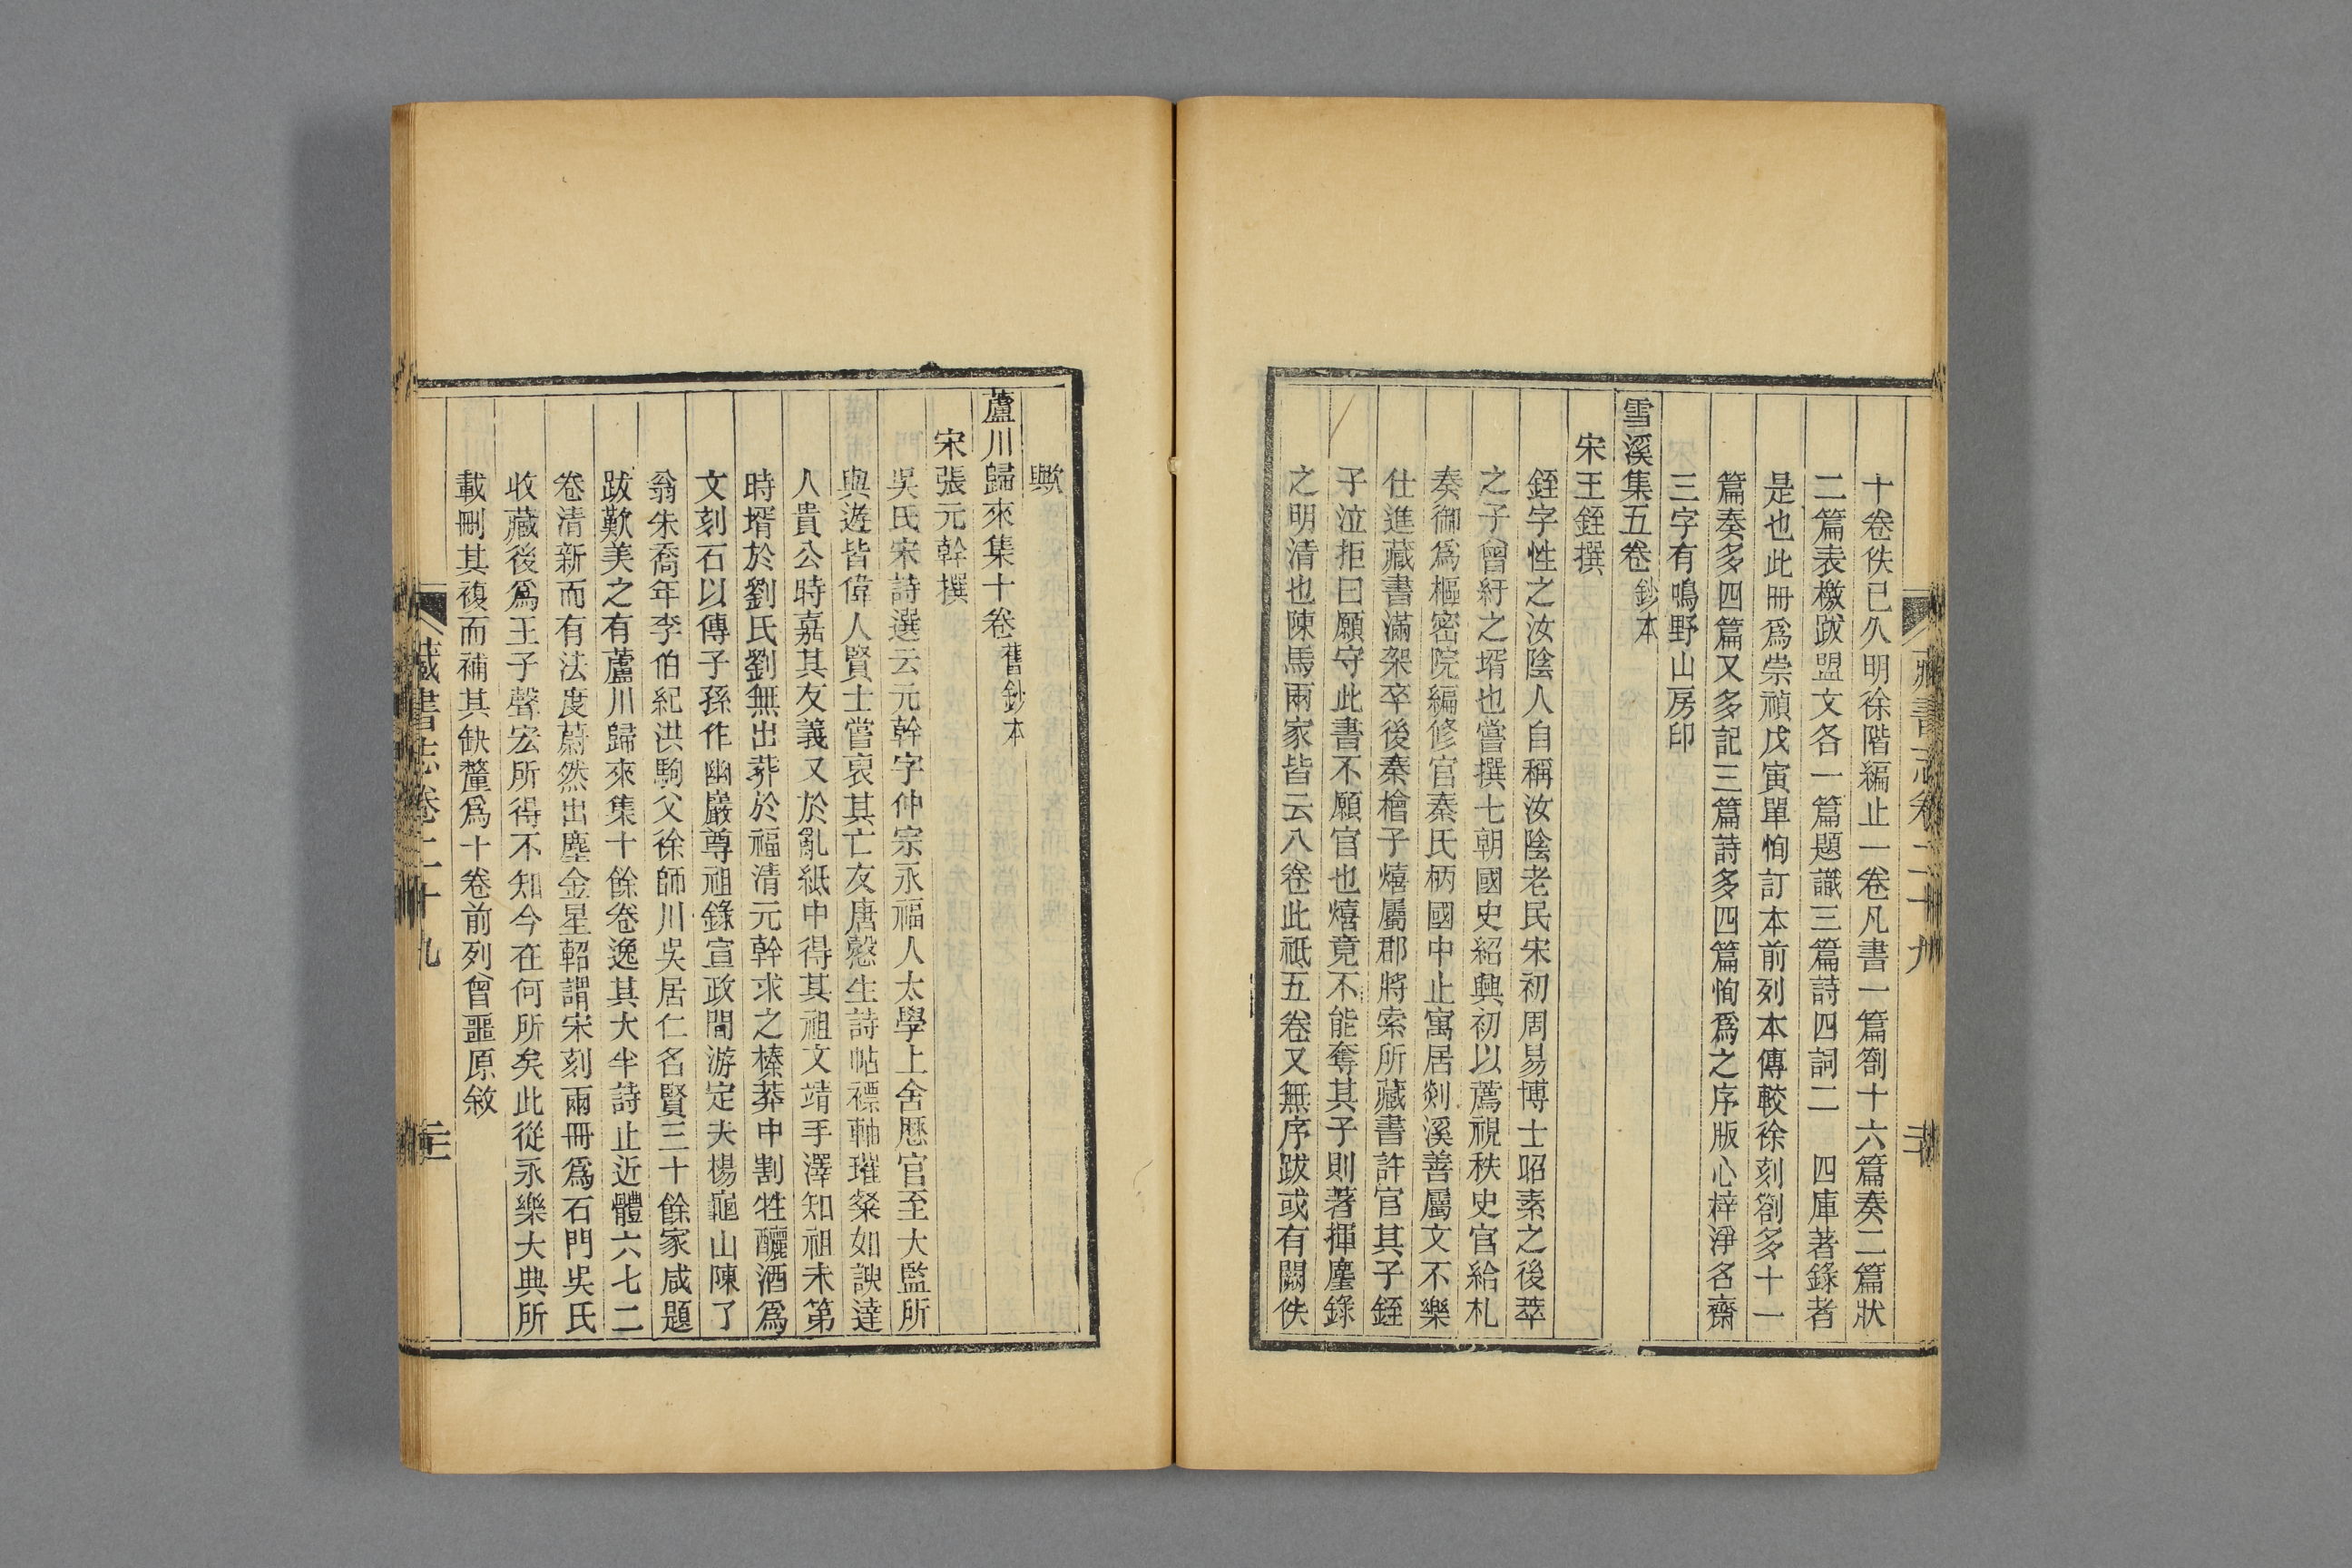 藏書志卷二十九
十卷佚已久明徐階編止一卷凡書一篇劄十六篇奏二篇狀
二篇表檄跋盟文各一篇題識三篇詩四詞二　四庫著錄者
是也此冊爲崇禎戊寅單恂訂本前列本傳較徐刻劄多十一
篇奏多四篇又多記三篇詩多四篇恂爲之序版心梓淨名齋
三字有鳴野山房印
雪溪集五卷鈔本
宋王銍撰
銍字性之汝陰人自稱汝陰老民宋初周易博士昭素之後莘
之子曾紆之壻也嘗撰七朝國史紹興初以薦視秩史官給札
奏御爲樞密院編修官秦氏柄國中止寓居剡溪善屬文不樂
仕進藏書滿架卒後秦檜子熺屬郡將索所藏書許官其子銍
子泣拒曰願守此書不願官也熺竟不能奪其子則著揮麈錄
之明清也陳馬兩家皆云八卷此祇五卷又無序跋或有闕佚
歟
蘆川歸來集十卷舊鈔本
宋張元幹撰
吳氏宋詩選云元幹字仲宗永福人太學上舍歷官至大監所
與遊皆偉人賢士嘗裒其亡友唐愨生詩帖褾軸璀粲如諛達
人貴公時嘉其友義又於亂紙中得其祖文靖手澤知祖未第
時壻於劉氏劉無出葬於福清元幹求之榛莽中割牲釃酒爲
文刻石以傳子孫作幽巖尊祖錄宣政間游定夫楊龜山陳了
翁朱喬年李伯紀洪駒父徐師川吳居仁名賢三十餘家咸題
跋歎美之有蘆川歸來集十餘卷逸其大半詩止近體六七二
卷清新而有法度蔚然出塵金星軺謂宋刻兩冊爲石門吳氏
收藏後爲王子聲宏所得不知今在何所矣此從永樂大典所
載刪其複而補其缺釐爲十卷前列曾噩原敘
藏書志卷二十九